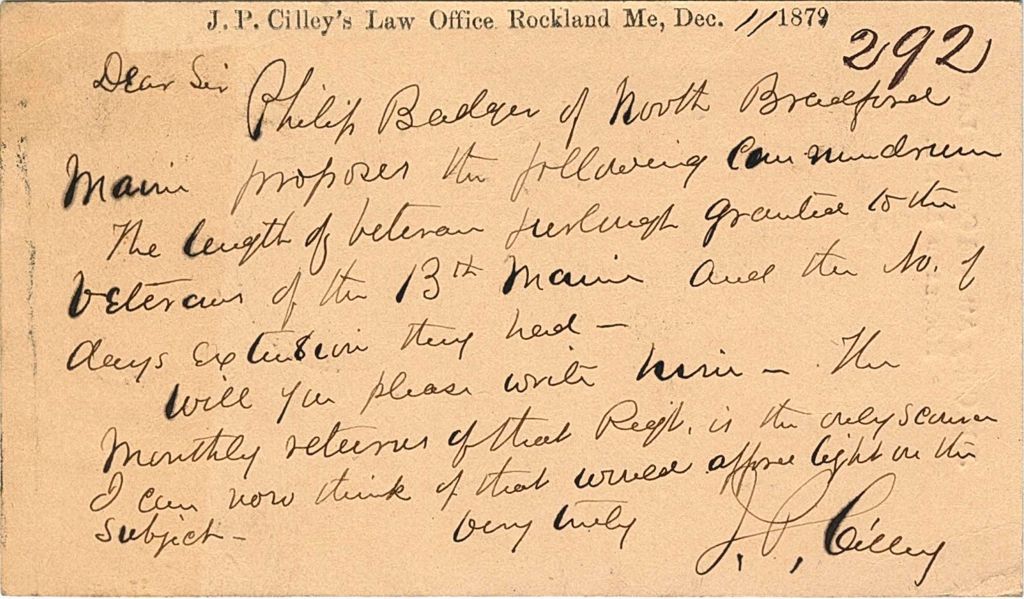 J. P. Cilley's Law Office Rockland Me, Dec. 11 1879
292
Dear Sir
Philip Badger of North Bradford
Maine proposes the following conundrum
The length of veteran furlough granted to the
Veterans of the 13th Maine and the No. of
days extension they had –
Will you please write him – The
Monthly returns of that Regt. is the only source
I can now think of that would afford light on the
subject –
Very truly
J. P. Cilley